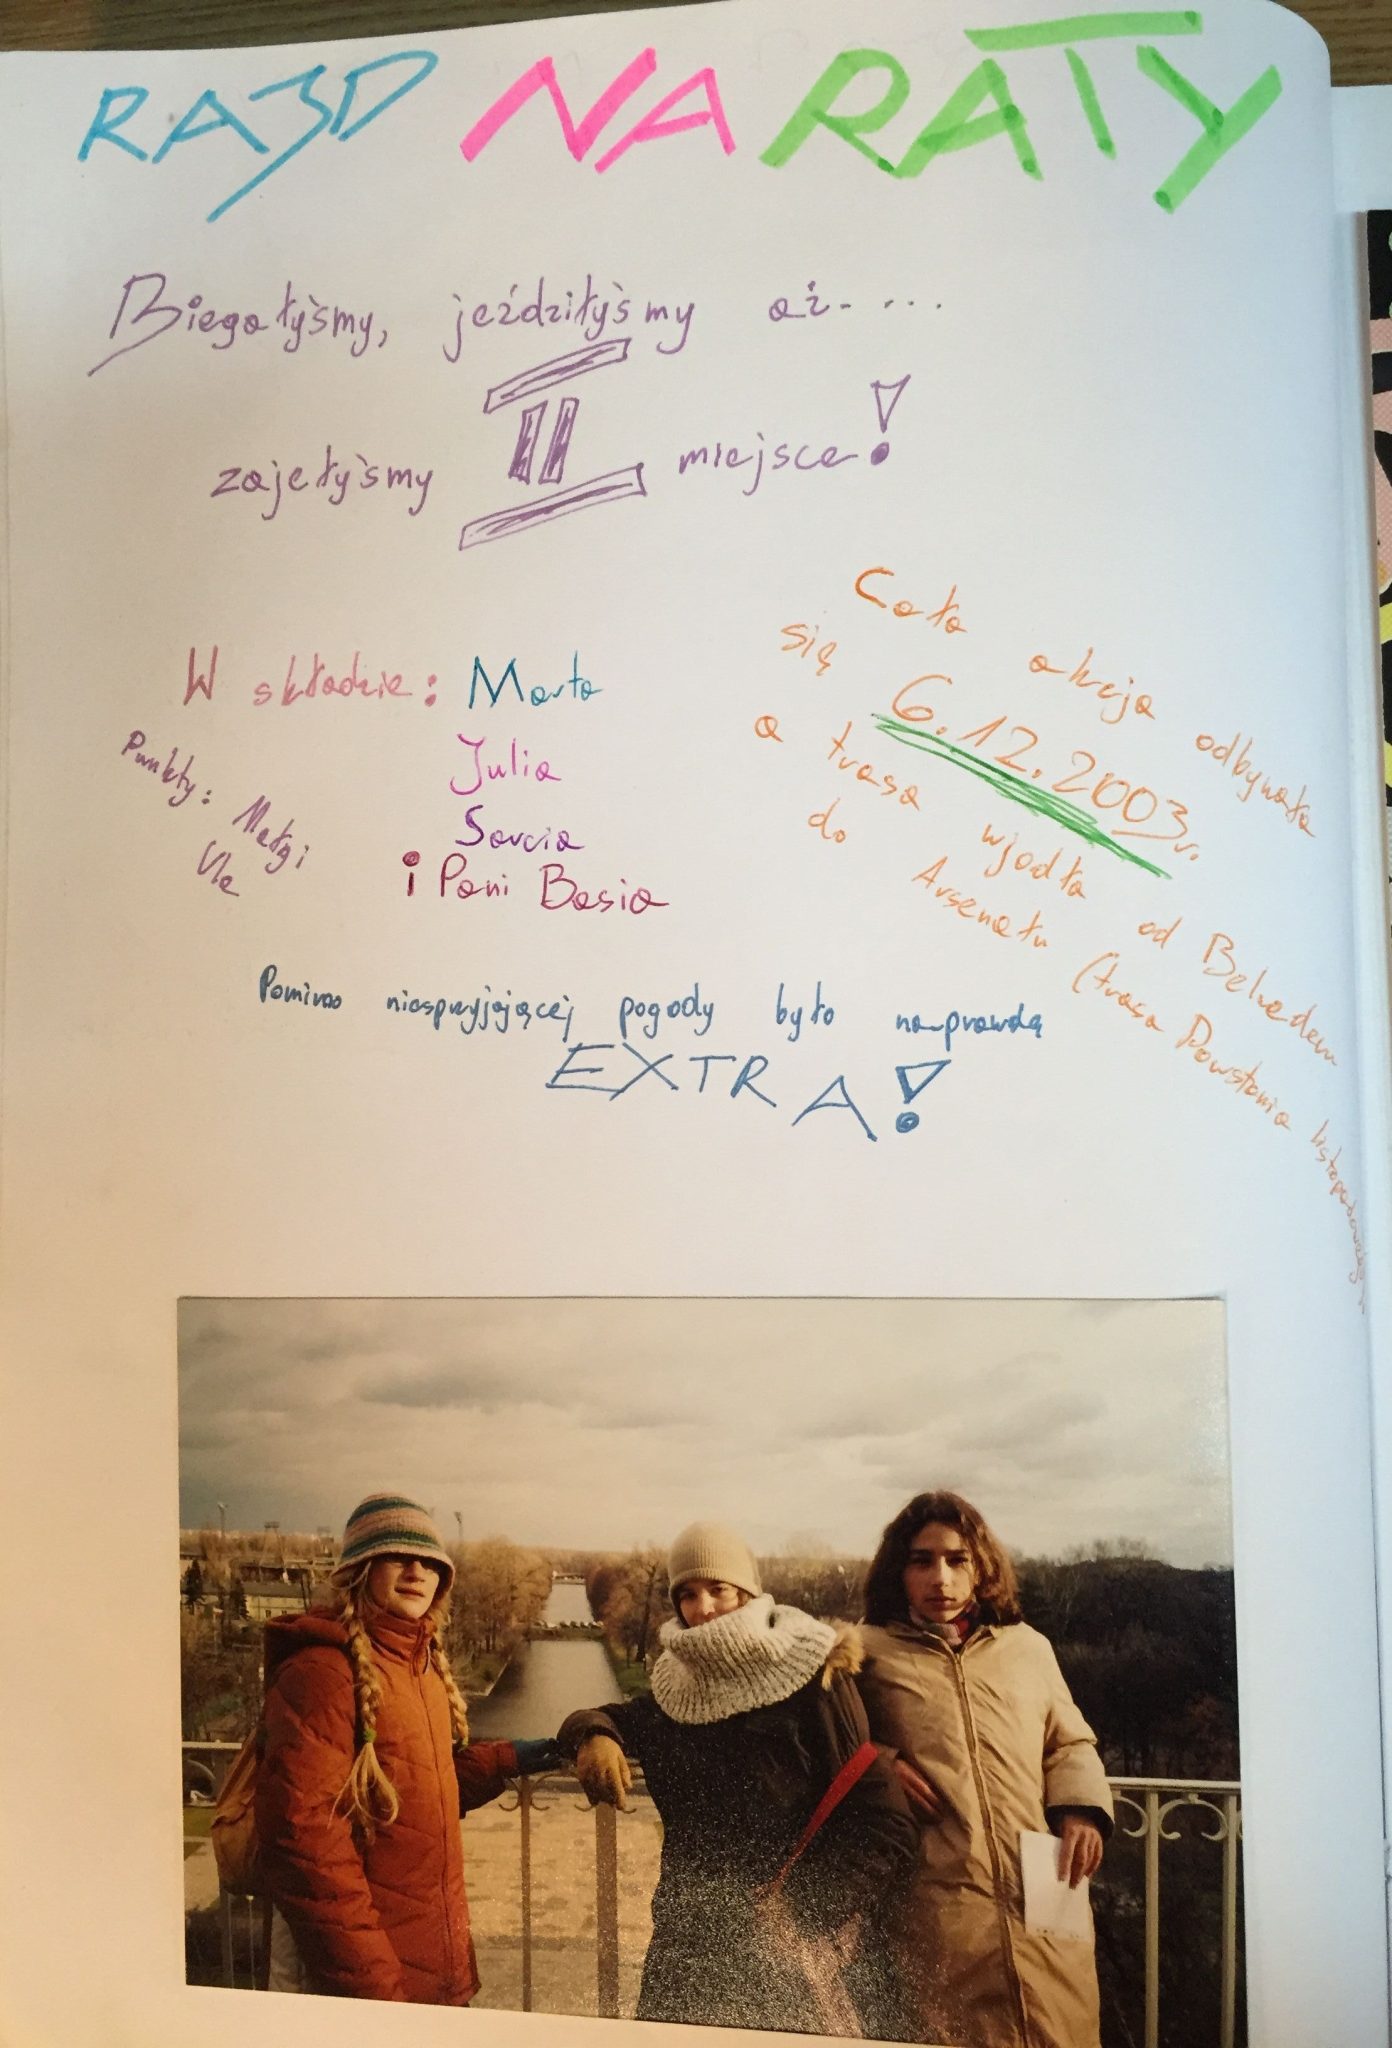 RAJD NA RATY
Biegałyśmy, jeździłyśmy aż.....
zajęłyśmy II miejsce!
W składzie: Marta
Julia
Sarcia
i Pani Basia
Punkty: Małgi
Ula
Cała akcja odbywała
się 6.12.2003r.
a trasa wiodła od Belwederu
do Arsenału (trasa Powstania listopadowego)
Pomimo niesprzyjającej pogody było naprawdę
EXTRA!